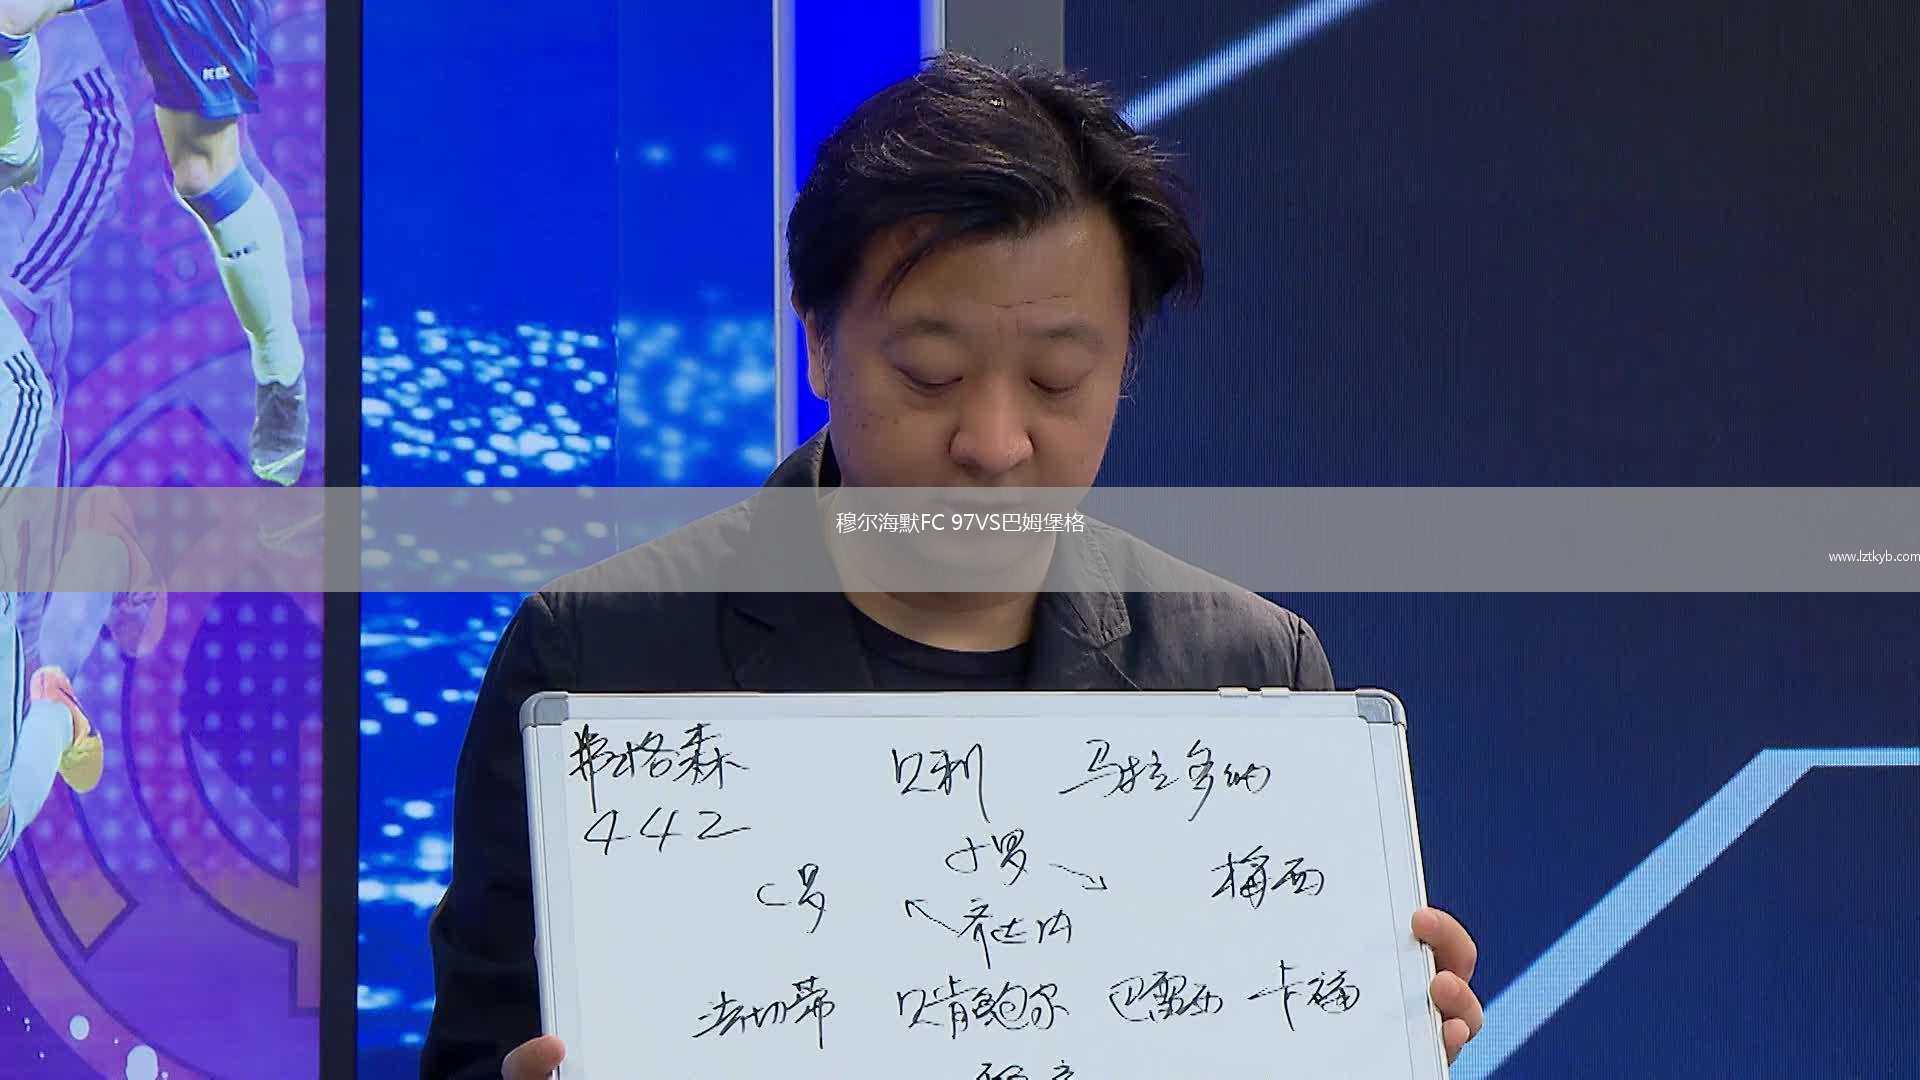 穆尔海默FC 97VS巴姆堡格
www.lztkyb.com
弗格森 贝利 马拉多纳
442
小罗
C罗 梅西
齐达内
法切蒂 贝肯鲍尔 巴雷西 卡福